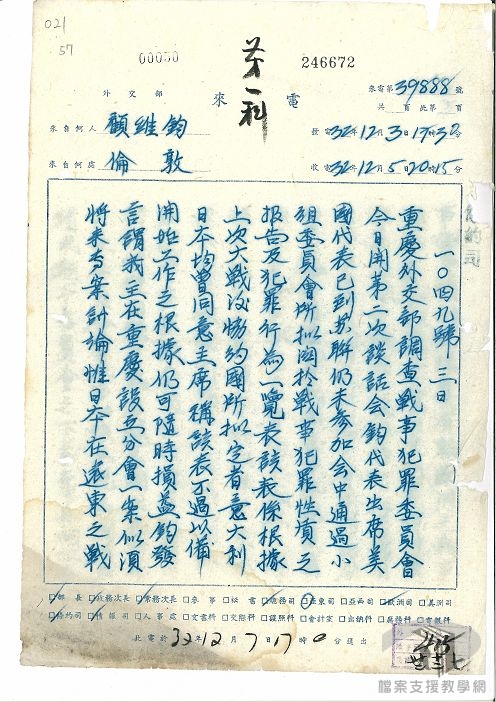 021
57
00050
第一科
246672
外交部
來電
來電第39888號
共 頁此第 頁
來自何人 顧維鈞
發電32年12月3日17時30分
來自何處 倫敦
收電32年12月5日20時15分
一〇四九號 三日
重慶外交部調查戰事犯罪委員會
今日開第二次談話會鈞代表出席美
國代表已到蘇聯仍未參加會中通過小
組委員會所擬關於戰事犯罪性質之
報告及犯罪行為一覽表該表係根據
上次大戰後協約國所擬定者意大利
日本均曾同意主席稱該表不過以備
開始工作之根據仍可隨時損益鈞發
言謂我主在重慶設立分會一案似須
將來專案討論惟日本在遠東之戰
□部長□政務次長□常務次長□參事□秘書□總務司□亞東司□亞西司□歐洲司□美洲司
□條約司□情報司□人事處□文書科□交際科□護照科□會計室□出納科□庶務科□電報科
此電於32年12月7日17時0分送出
檔案支援教學網